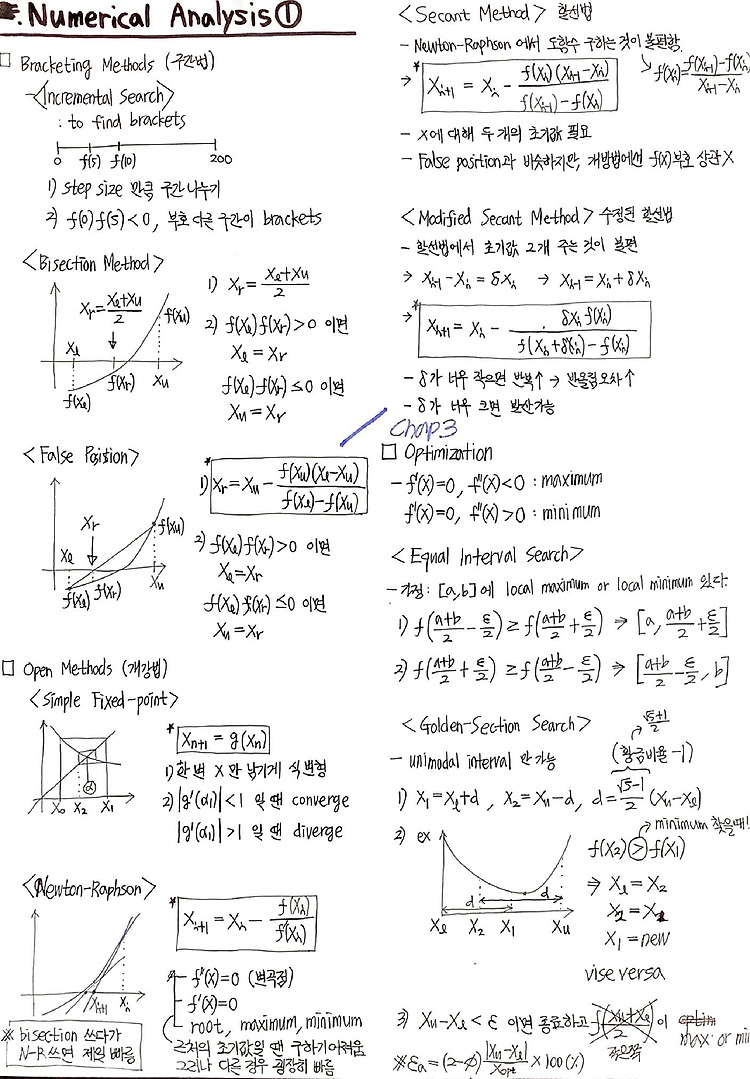 Numerical Analysis①
□ Bracketing Methods (구간법)
-<Incremental Search>
: to find brackets
0 f(5) f(10) 200
1) step size 만큼 구간 나누기
2) f(0)f(5)<0, 부호 다른 구간이 brackets
<Bisection Method>
Xr=(Xl+Xu)/2
f(Xu)
Xl
f(Xl) f(Xr) Xu
1) Xr=(Xl+Xu)/2
2) f(Xl)f(Xr)>0 이면
Xl=Xr
f(Xl)f(Xr)≤0 이면
Xu=Xr
<False Position>
Xr
f(Xu)
Xl
f(Xl) f(Xr) Xu
*
1) Xr=Xu-f(Xu)(Xl-Xu)/(f(Xl)-f(Xu))
2) f(Xl)f(Xr)>0 이면
Xl=Xr
f(Xl)f(Xr)≤0 이면
Xu=Xr
□ Open Methods (개방법)
<Simple Fixed-point>
α
X0 X2 X1
* Xn+1=g(Xn)
1) 한 변 X만 남기게 식 변형
2) |g'(α1)|<1 일 땐 converge
|g'(α1)|>1 일 땐 diverge
<Newton-Raphson>
Xi+1 Xi
* Xi+1=Xi-f(Xi)/f'(Xi)
- f''(X)=0 (변곡점)
- f'(X)=0
root, maximum, minimum
근처의 초기값일 땐 구하기 어려움
그러나 다른 경우 굉장히 빠름
※ bisection 쓰다가
N-R쓰면 제일 빠름
<Secant Method> 할선법
- Newton-Raphson 에서 도함수 구하는 것이 불편함.
f'(Xi)=(f(Xi-1)-f(Xi))/(Xi-1-Xi)
→ * Xi+1=Xi-f(Xi)(Xi-1-Xi)/(f(Xi-1)-f(Xi))
- X에 대해 두 개의 초기값 필요
- False position과 비슷하지만, 개방법에선 f(X)부호 상관X
<Modified Secant Method> 수정된 할선법
- 할선법에서 초기값 2개 주는 것이 불편
→ Xi-1-Xi=δXi → Xi-1=Xi+δXi
→ * Xi+1=Xi-δXi f(Xi)/(f(Xi+δXi)-f(Xi))
- δ가 너무 작으면 반복↑ → 반올림오차↑
- δ가 너무 크면 발산가능
Chap3
□ Optimization
- f'(X)=0, f''(X)<0 : maximum
f'(X)=0, f''(X)>0 : minimum
<Equal Interval Search>
- 가정: [a,b]에 local maximum or local minimum 있다.
1) f((a+b)/2-ε/2)≥f((a+b)/2+ε/2) → [a, (a+b)/2+ε/2]
2) f((a+b)/2+ε/2)≥f((a+b)/2-ε/2) → [(a+b)/2-ε/2, b]
<Golden-Section Search>
(√5+1)/2
- unimodal interval 만 가능
(황금비율-1)
1) X1=Xl+d, X2=Xu-d, d=(√5-1)/2 (Xu-Xl)
2) ex
minimum 찾을때!
f(X2)>f(X1)
⇒ Xl=X2
X2=X1
X1=new
vise versa
d d
Xl X2 X1 Xu
3) Xu-Xl<ε 이면 종료하고 f((Xu+Xl)/2)이 optim
max. or mi
※εa=(2-φ)|Xu-Xl|/Xopt×100(%)